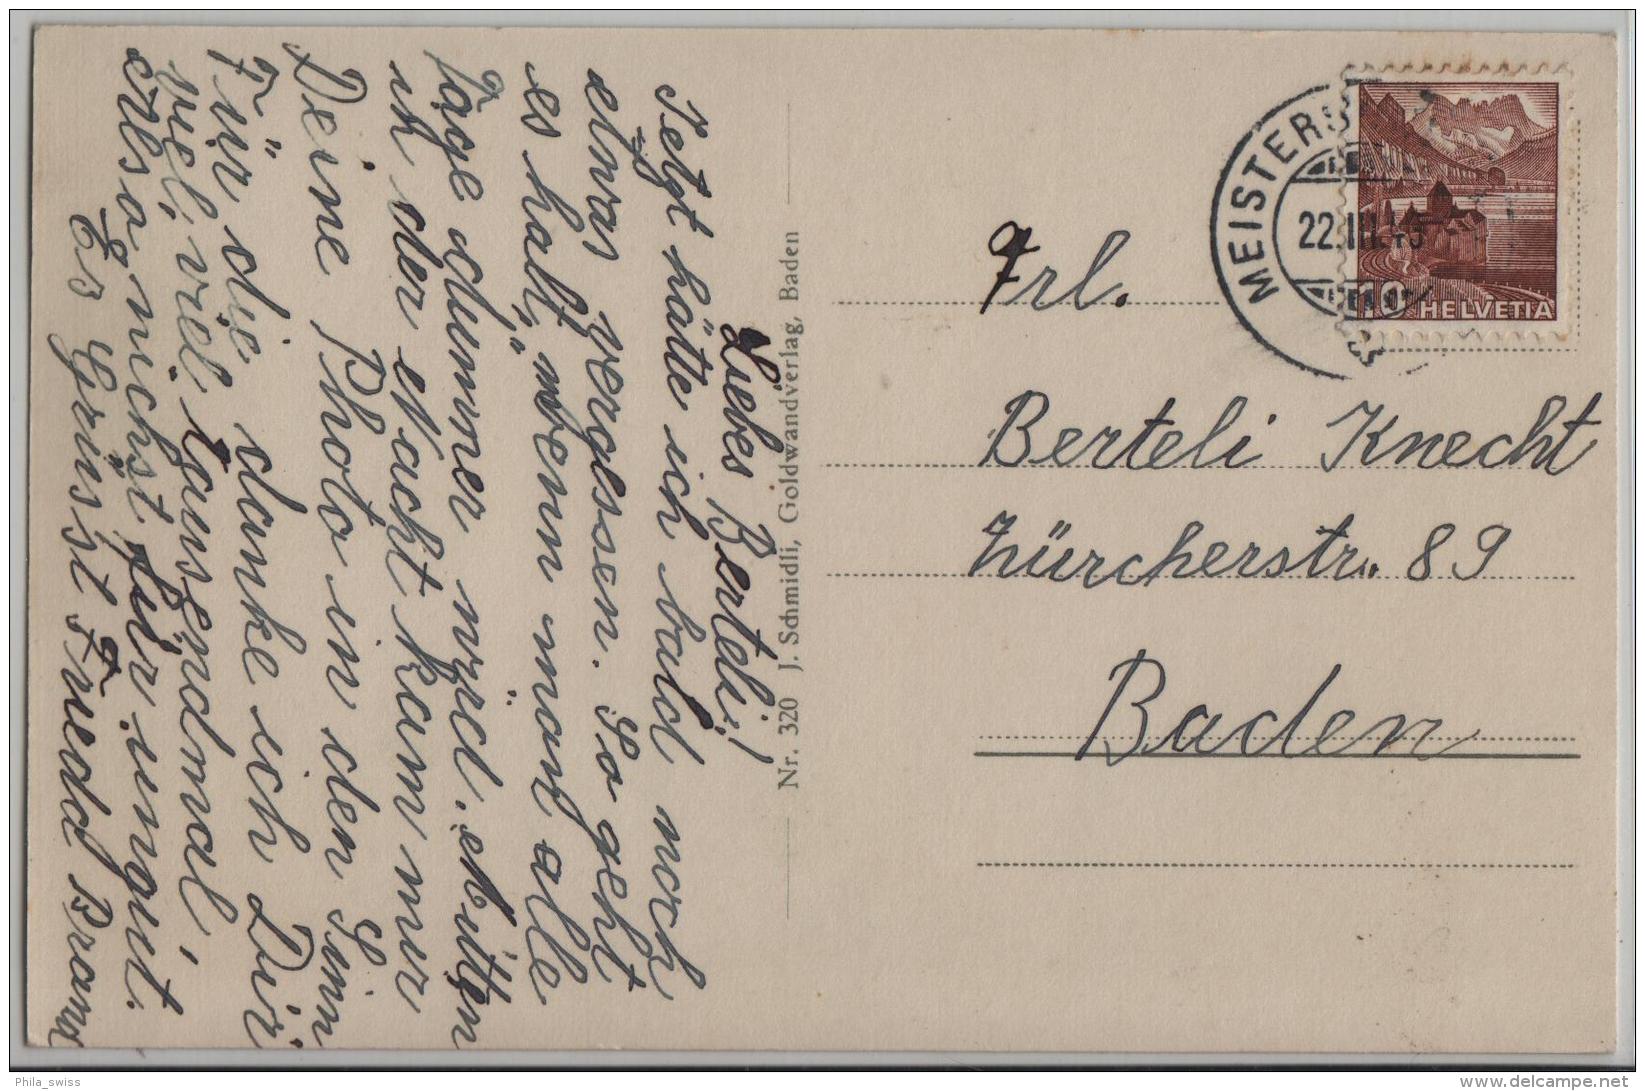 Liebes Berteli!
Jetzt hätte ich bald noch
etwas vergessen. So geht
es halt, wenn man alle
Tage dummer wird. Mitten
in der Nacht kam mir
Deine Photo in den Sinn
Für die danke ich Dir
viel, viel tausendmal!
Also nichts für ungut.
Es Grüsst Frieda
Nr. 320 J. Schmidli, Goldwandverlag, Baden
MEISTERS
22.III.45
10 HELVETIA
Frl.
Berteli Knecht
Zürcherstr. 89
Baden
Phila_swiss
delcampe.net